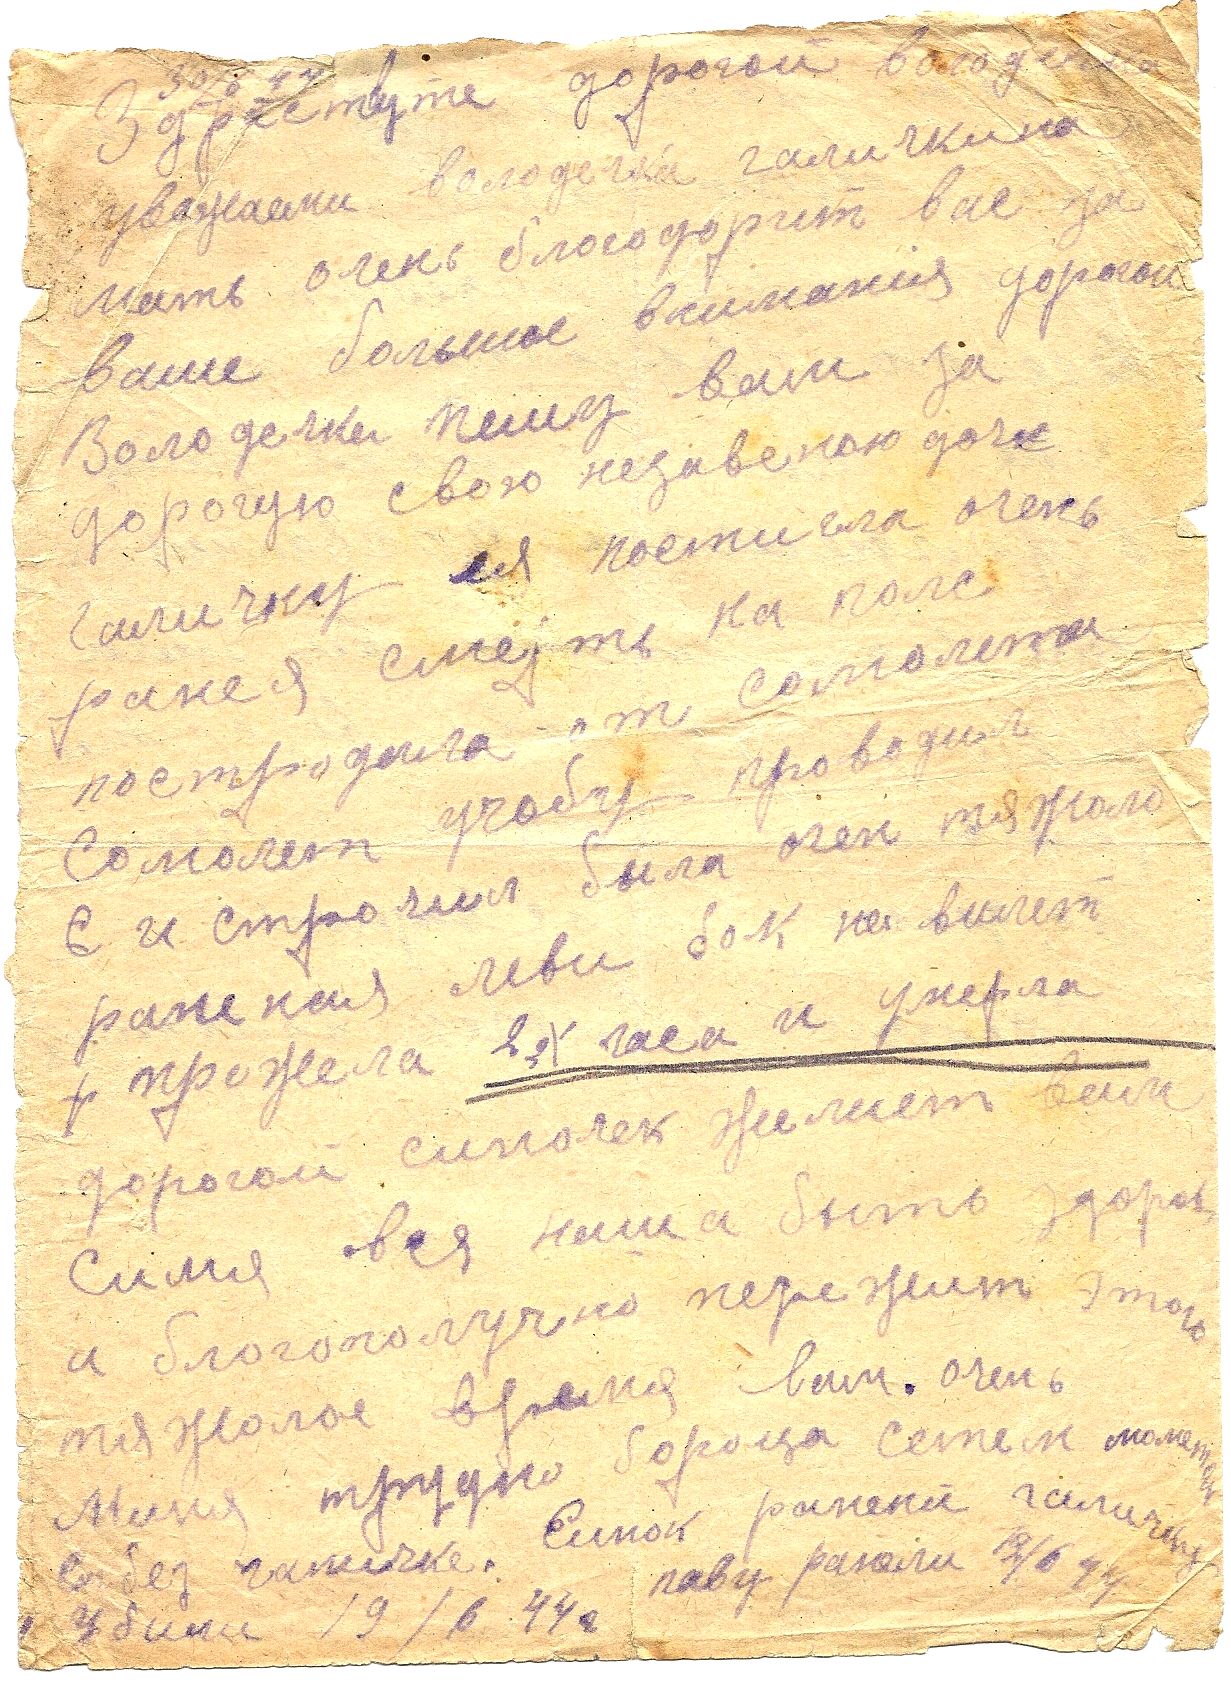 30/6 44
Здраствуте дорогой володечка
уважаеми володечка галичкина
мать очень благодорит вас за
ваше большое внимания дорогой
Володечка пишу вам за
дорогую свою незавеную дочк
галичку ея постигла очень
ранея смерть на поле
постродала от сомолета
Сомолет учобу проводил
Є и строчил была очен тяжоло
раненая леви бок на вилет
прожела 2х часа и умерла
дорогой синочек желает вам
Симя вся наша быть здоров
и благополучно пережит этого
тяжолое время вам. очень
Миня трудно бороца сетем моментом
без галичке. Синок ранени галичку
убили 19/6 44г
раніли 19/6 44